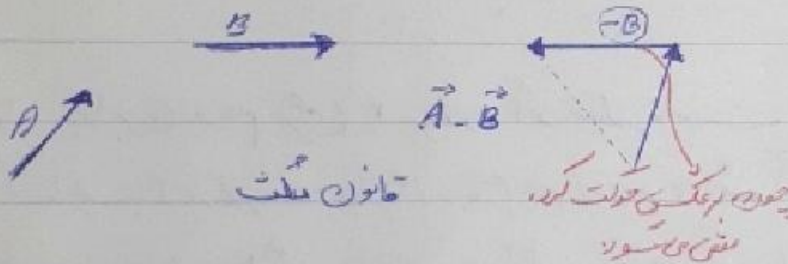 B
-B
A
A - B
قانون مثلث
چون برعکس حرکت کرده
منفی می‌شود